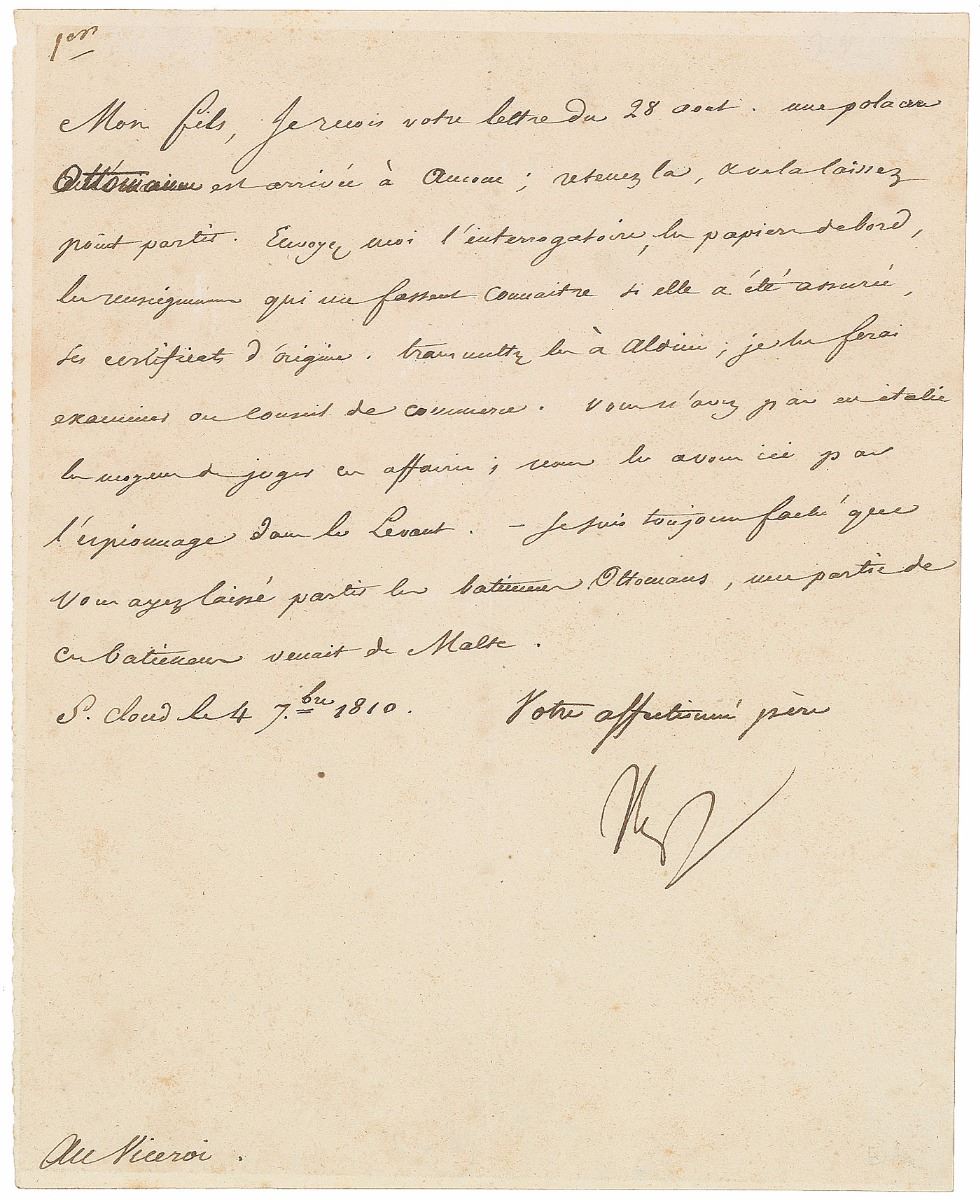 Mon fils, Je reçois votre lettre du 28 aout. une polacre
Ottomanne est arrivée à Ancone ; retenez la, & ne la laissez
point partir. Envoyez moi l'interrogatoire, les papiers de bord,
les renseignemens qui me fassent connaitre si elle a été assurée,
ses certificats d'origine. transmettez les à Aldini ; je les ferai
examiner au Conseil de commerce. Vous n'avez pas en italie
les moyens de juger ces affaires ; nous les avons ici par
l'espionnage dans le Levant. – Je suis toujours faché que
Vous ayez laissé partir les batimens Ottomans, une partie de
ces batimens venait de Malte.
S. Cloud le 4 7.bre 1810.
Votre affectionné père
Np
Au Viceroi.